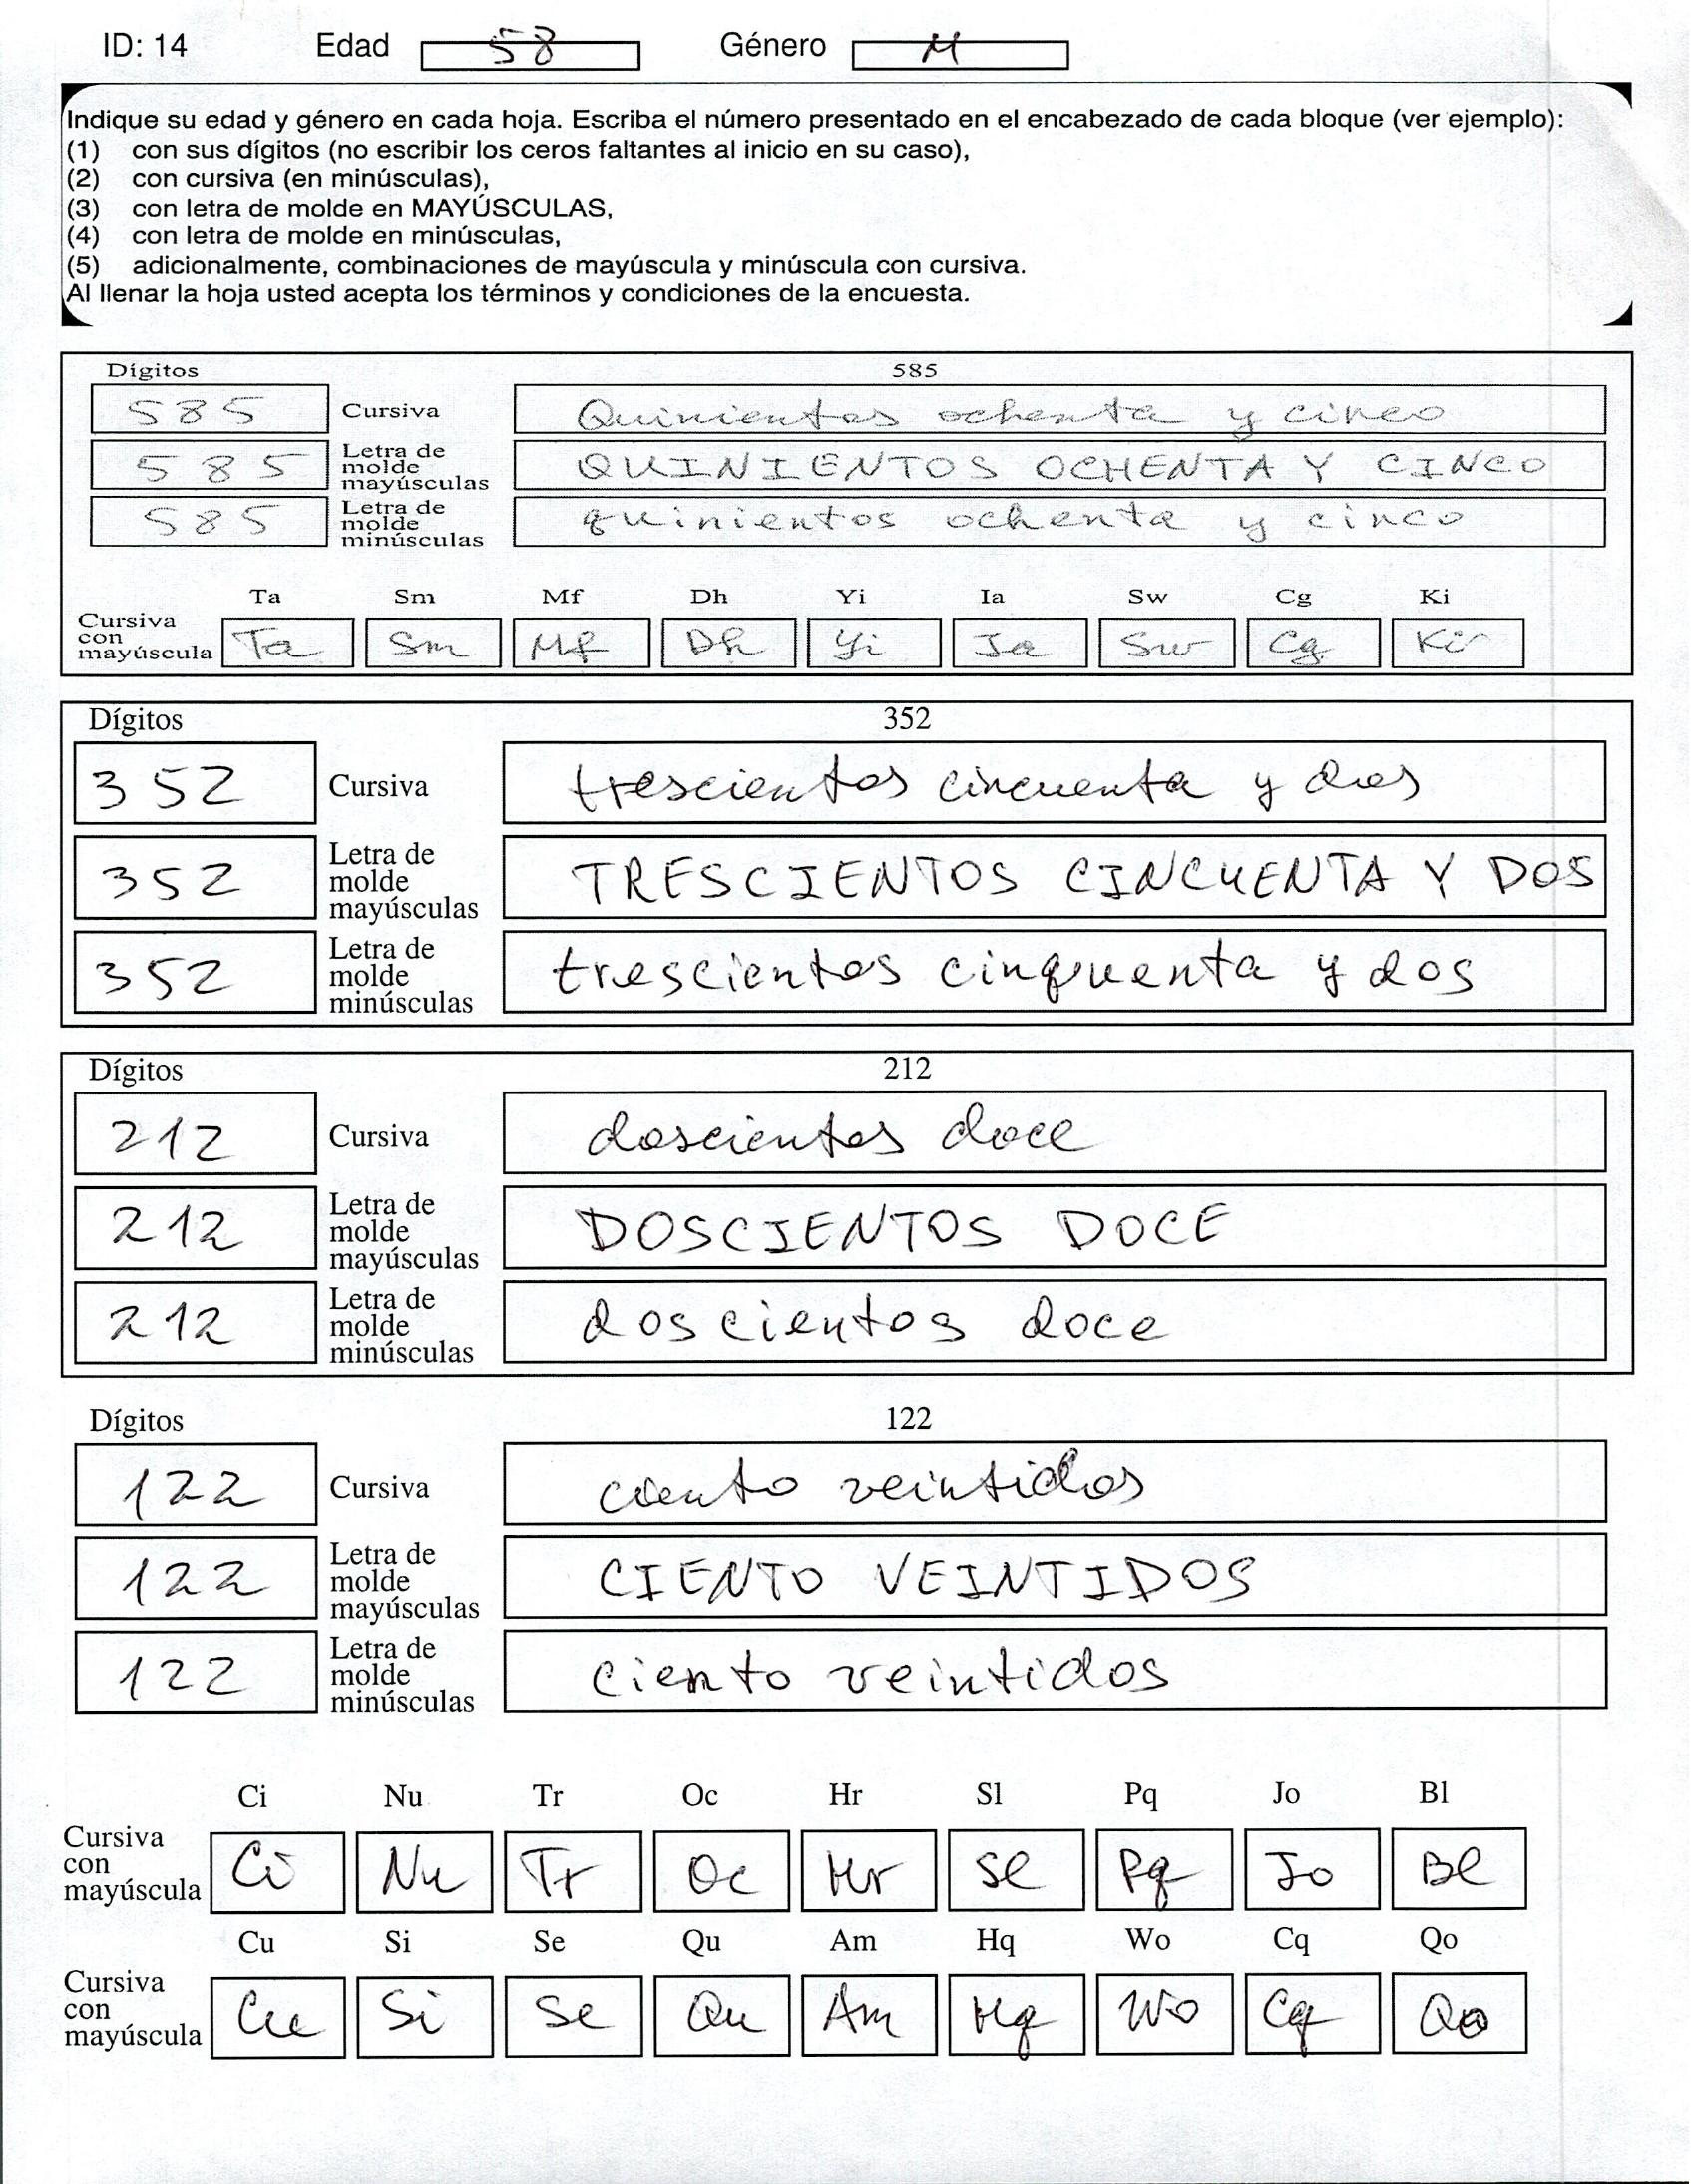 ID: 14 Edad 58 Género M
Indique su edad y género en cada hoja. Escriba el número presentado en el encabezado de cada bloque (ver ejemplo):
(1) con sus dígitos (no escribir los ceros faltantes al inicio en su caso),
(2) con cursiva (en minúsculas),
(3) con letra de molde en MAYÚSCULAS,
(4) con letra de molde en minúsculas,
(5) adicionalmente, combinaciones de mayúscula y minúscula con cursiva.
Al llenar la hoja usted acepta los términos y condiciones de la encuesta.
Dígitos 585
585 Cursiva Quinientos ochenta y cinco
585 Letra de molde mayúsculas QUINIENTOS OCHENTA Y CINCO
585 Letra de molde minúsculas quinientos ochenta y cinco
Ta Sm Mf Dh Yi Ia Sw Cg Ki
Cursiva con mayúscula Ta Sm Mf Dh Yi Ia Sw Cg Ki
Dígitos 352
352 Cursiva trescientos cincuenta y dos
352 Letra de molde mayúsculas TRESCIENTOS CINCUENTA Y DOS
352 Letra de molde minúsculas trescientos cinquenta y dos
Dígitos 212
212 Cursiva doscientos doce
212 Letra de molde mayúsculas DOSCIENTOS DOCE
212 Letra de molde minúsculas doscientos doce
Dígitos 122
122 Cursiva ciento veintidos
122 Letra de molde mayúsculas CIENTO VEINTIDOS
122 Letra de molde minúsculas ciento veintidos
Ci Nu Tr Oc Hr Sl Pq Jo Bl
Cursiva con mayúscula Ci Nu Tr Oc Hr Sl Pq Jo Bl
Cu Si Se Qu Am Hq Wo Cq Qo
Cursiva con mayúscula Cu Si Se Qu Am Hq Wo Cq Qo